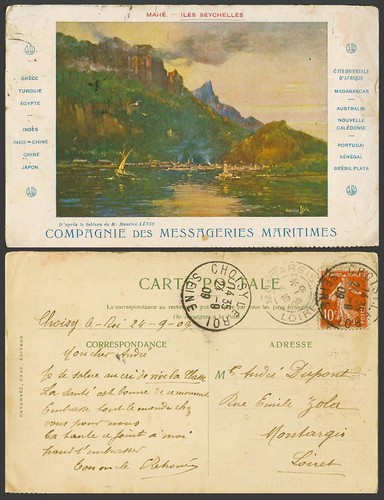 MAHÉ. — ILES SEYCHELLES
GRÈCE
TURQUIE
EGYPTE
INDES
INDO-CHINE
CHINE
JAPON
CÔTE ORIENTALE
D'AFRIQUE
MADAGASCAR
AUSTRALIE
NOUVELLE
CALÉDONIE
PORTUGAL
SÉNÉGAL
BRÉSIL, PLATA
D'après le tableau de M. Maurice LÉVIS
COMPAGNIE DES MESSAGERIES MARITIMES
CARTE POSTALE
La correspondance au recto
CHOISY-LE-ROI
14 35
24 -9
09
SEINE
MONTARGIS
LOIRET
10
Choisy-le-Roi 24-9-09
CORRESPONDANCE
ADRESSE
DEVAMBEZ, GRAV. ÉDITEUR
Mon cher André
Je te salue au cri de vive la Classe
La santé est bonne de ce moment
Embrasse tout le monde chez
vous pour nous
Ta tante se joint à moi
pour t'embrasser
Ton oncle
Mr André Dupont
Rue Emile Zola
Montargis
Loiret